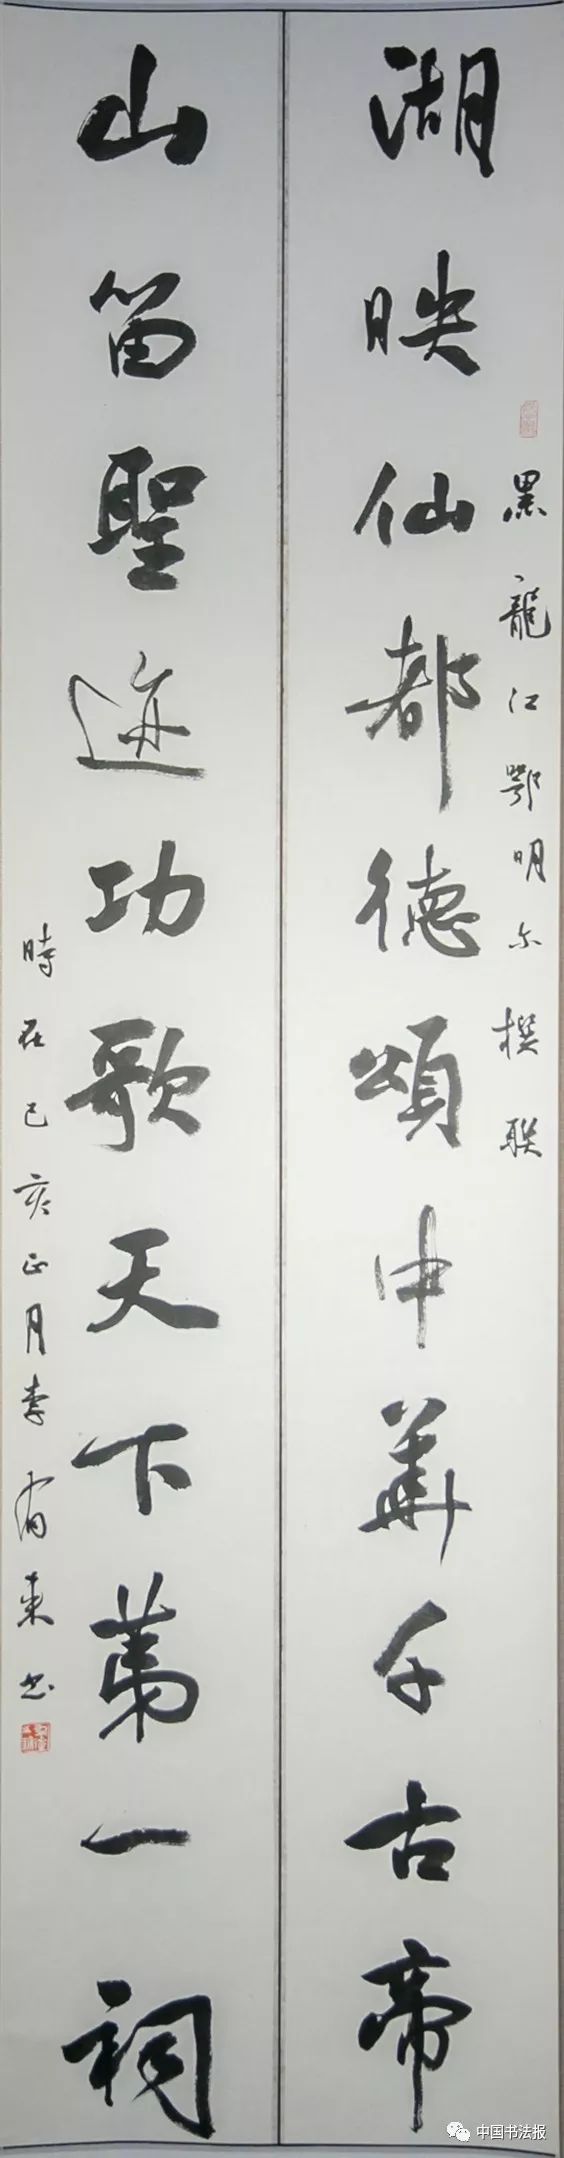 黑龍江鄂明尔撰联
湖映仙都德頌中華千古帝
山留聖迹功歌天下第一祠
時在己亥正月李有来书
中国书法报